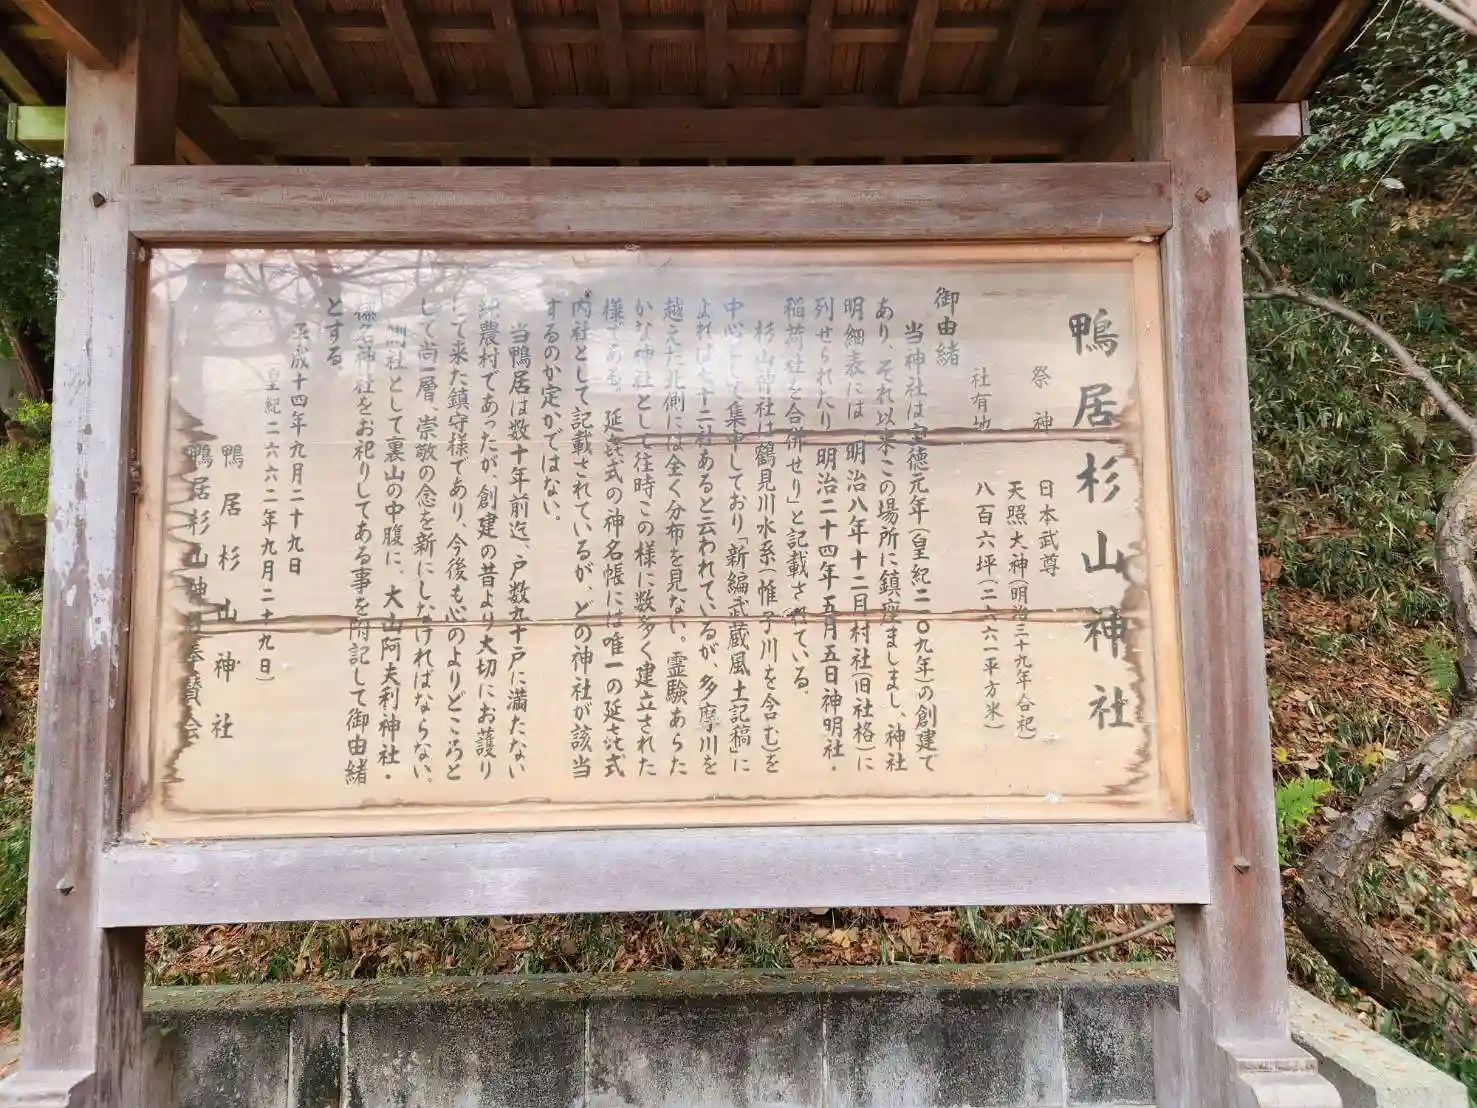 鴨居杉山神社
祭神 日本武尊
天照大神(明治三十九年合祀)
社有地 八百六坪(二六六一平方米)
御由緒
当神社は宝徳元年(皇紀二一〇九年)の創建で
あり、それ以来この場所に鎮座ましまし、神社
明細表には「明治八年十二月村社(旧社格)に
列せられたり、明治二十四年五月五日神明社・
稲荷社を合併せり」と記載されている。
杉山神社は鶴見川水系(惟子川を含む)を
中心として集中しており「新編武蔵風土記稿」に
よれば七十二社あると云われているが、多摩川を
越えた北側には全く分布を見ない。霊験あらた
かな神社として往時この様に数多く建立された
様である。延㐂式の神名帳には唯一の延㐂式
内社として記載されているが、どの神社が該当
するのか定かではない。
当鴨居は数十年前迄、戸数九十戸に満たない
純農村であったが、創建の昔より大切にお護り
して来た鎮守様であり、今後も心のよりどころと
して尚一層、崇敬の念を新にしなければならない。
社として裏山の中腹に、大山阿夫利神社・
榛名神社をお祀りしてある事を附記して御由緒
とする。
平成十四年九月二十九日
(皇紀二六六二年九月二十九日)
鴨居杉山神社
鴨居杉山神社奉賛会